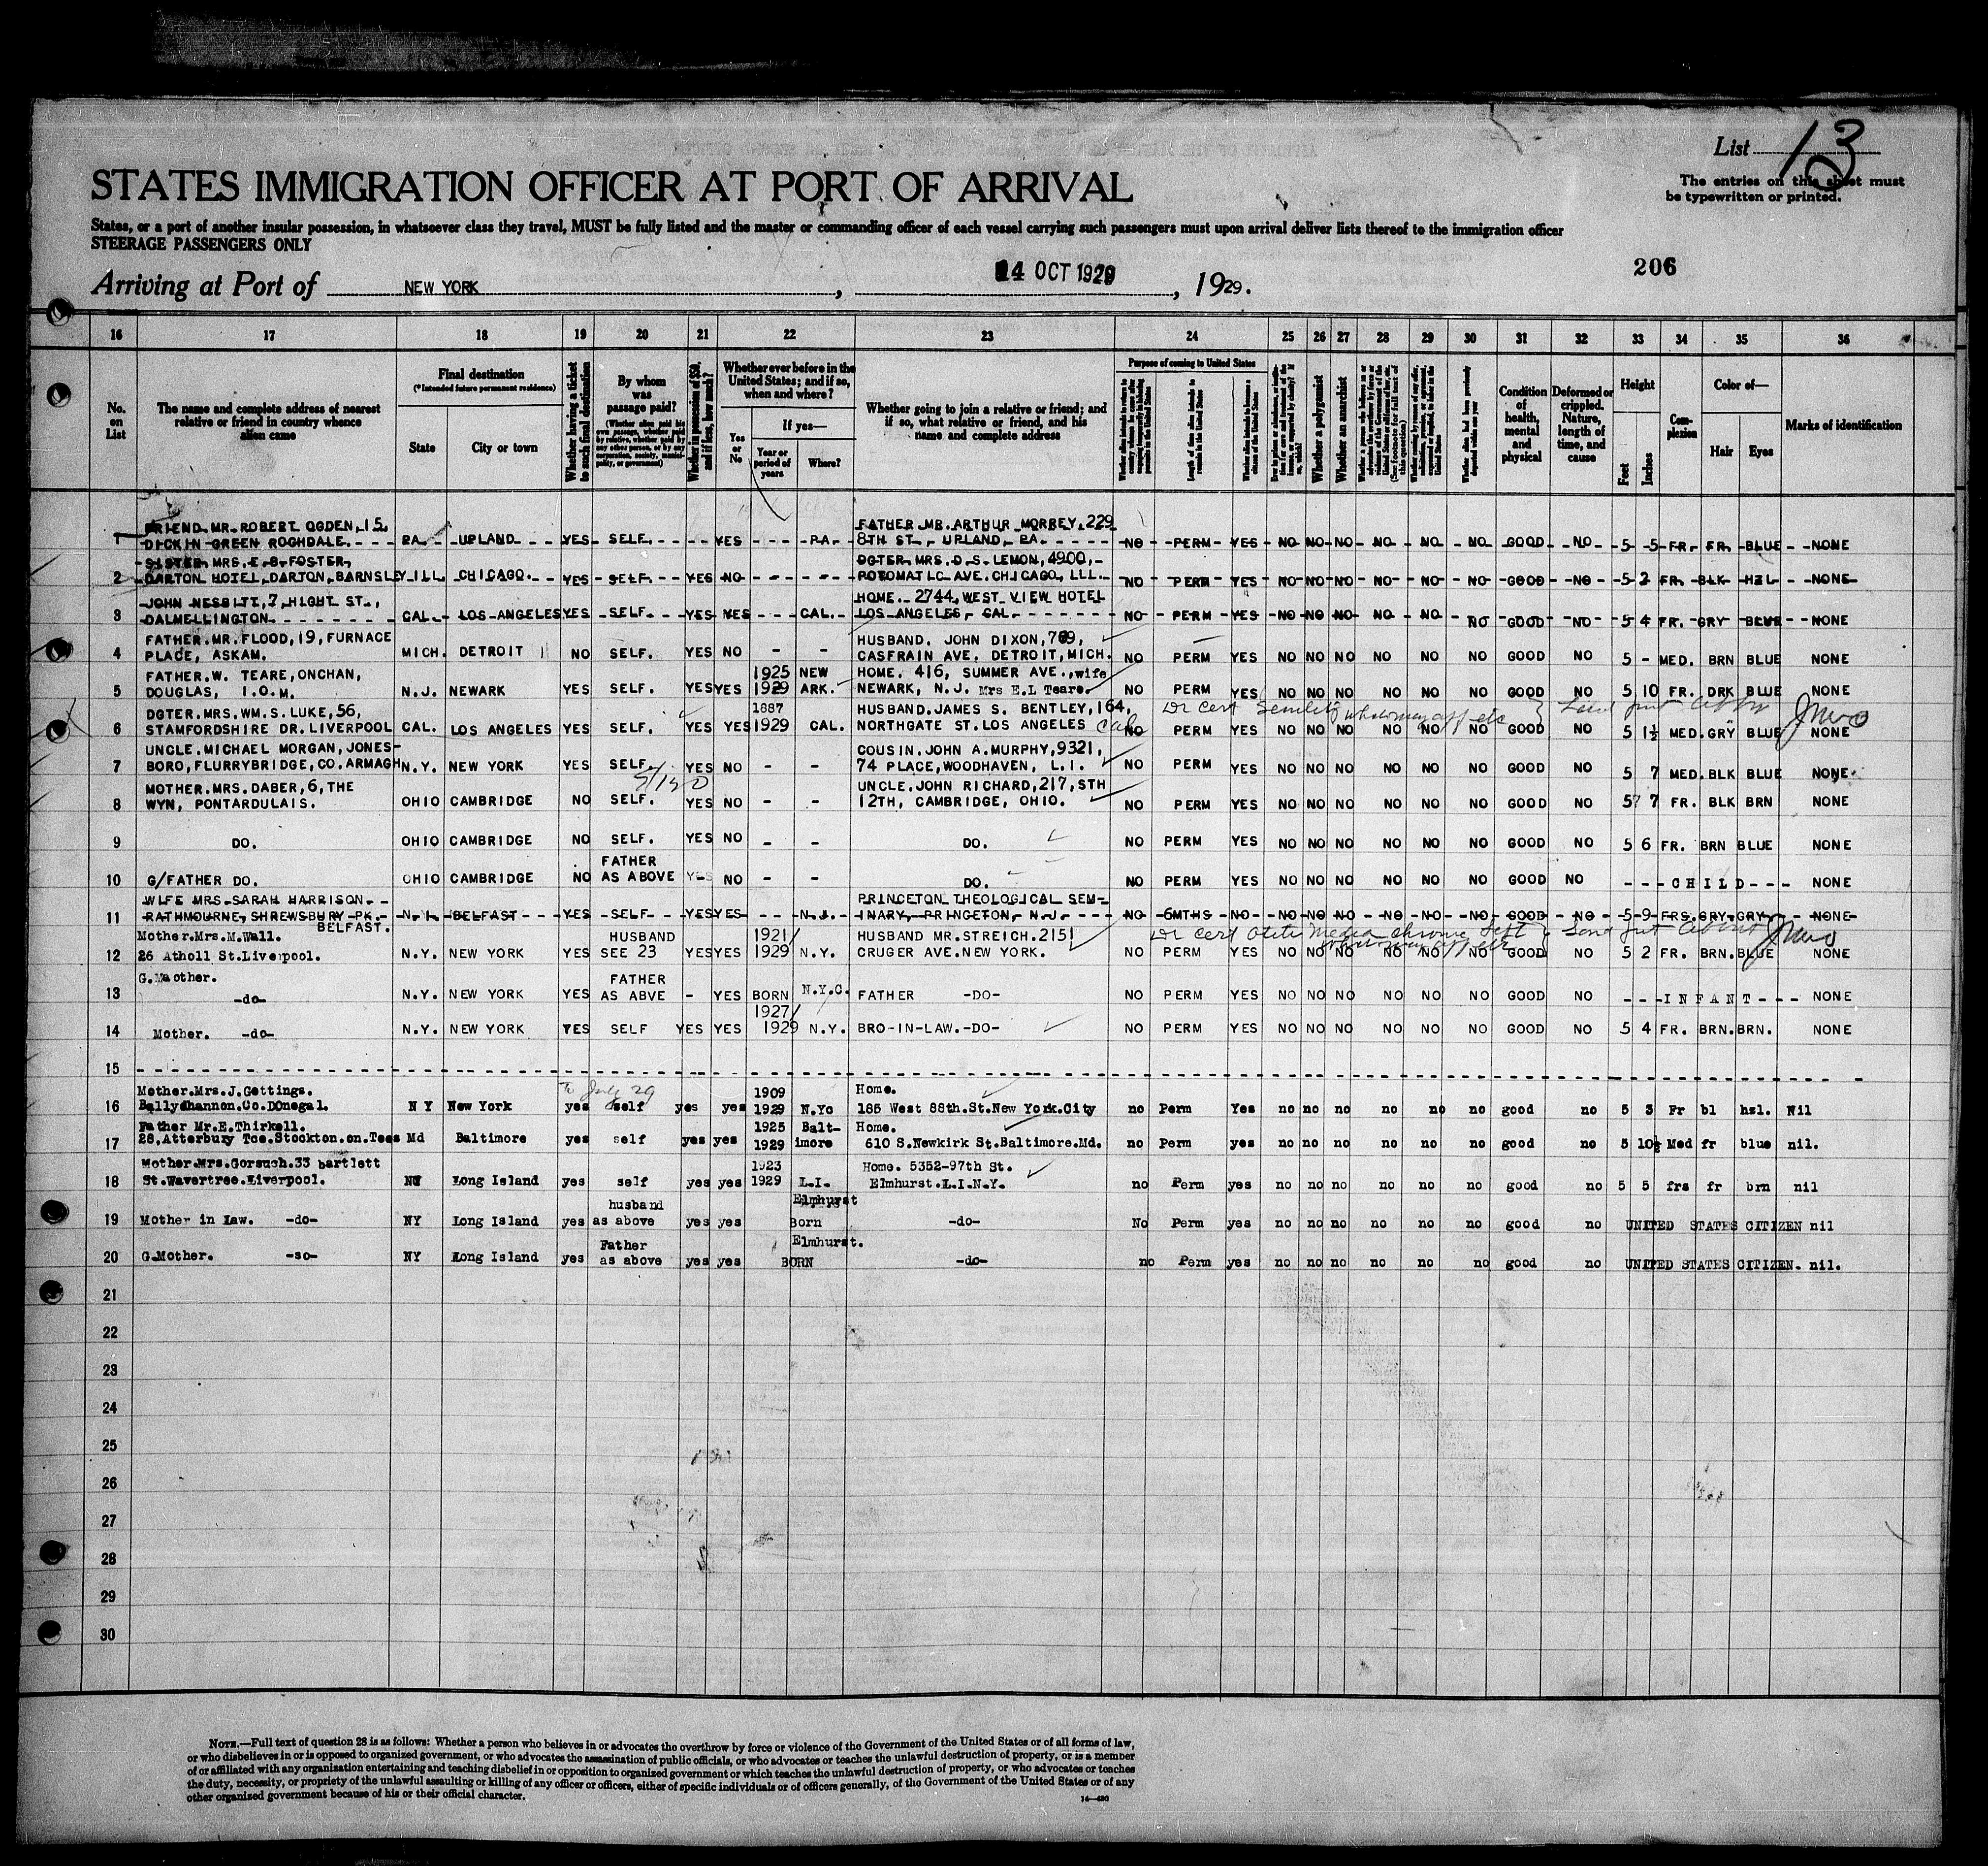 List 13
The entries on this sheet must
be typewritten or printed.
STATES IMMIGRATION OFFICER AT PORT OF ARRIVAL
States, or a port of another insular possession, in whatsoever class they travel, MUST be fully listed and the master or commanding officer of each vessel carrying such passengers must upon arrival deliver lists thereof to the immigration officer
STEERAGE PASSENGERS ONLY
206
Arriving at Port of NEW YORK, 14 OCT 1929, 1929.
16 17 18 19 20 21 22 23 24 25 26 27 28 29 30 31 32 33 34 35 36
No. on List
The name and complete address of nearest relative or friend in country whence alien came
Final destination
(*Intended future permanent residence)
State
City or town
Whether having a ticket to such final destination
By whom was passage paid?
(Whether alien paid his own passage, whether paid by relative, whether paid by any other person, or by any corporation, society, municipality, or government)
Whether in possession of $50, and if less, how much?
Whether ever before in the United States; and if so, when and where?
Yes or No
If yes—
Year or period of years
Where?
Whether going to join a relative or friend; and if so, what relative or friend, and his name and complete address
Purpose of coming to United States
Length of time alien intends to remain in the United States
Whether a polygamist
Whether an anarchist
Condition of health, mental and physical
Deformed or crippled. Nature, length of time, and cause
Height
Feet
Inches
Complexion
Color of—
Hair
Eyes
Marks of identification
FRIEND MR. ROBERT OGDEN, 15, FATHER MR. ARTHUR MORREY, 229
1 DICKIN GREEN ROCHDALE. PA. UPLAND YES SELF. YES PA. 8TH ST., UPLAND, PA. NO PERM YES NO NO NO NO NO NO GOOD NO 5 5 FR. FR. BLUE NONE
SISTER MRS. E.B. FOSTER, DGTER MRS. D.S. LEMON, 4900,
2 DARTON HOTEL, DARTON, BARNSLEY ILL. CHICAGO. YES SELF. YES NO POTOMATIC AVE. CHICAGO, LLL. NO PERM YES NO NO NO NO NO NO GOOD NO 5 2 FR. BLK HZL NONE
JOHN NESBITT, 7, HIGHT ST., HOME. 2744, WEST VIEW HOTEL
3 DALMELLINGTON. CAL. LOS ANGELES YES SELF. YES YES CAL. LOS ANGELES, CAL. NO PERM YES NO NO NO NO NO NO GOOD NO 5 4 FR. GRY BLUE NONE
FATHER. MR. FLOOD, 19, FURNACE HUSBAND. JOHN DIXON, 789,
4 PLACE, ASKAM. MICH. DETROIT NO SELF. YES NO - - CASFRAIN AVE. DETROIT, MICH. NO PERM YES NO NO NO NO NO NO GOOD NO 5 - MED. BRN BLUE NONE
FATHER. W. TEARE, ONCHAN, 1925 NEW HOME. 416, SUMMER AVE., wife
5 DOUGLAS, I.O.M. N.J. NEWARK YES SELF. YES YES 1929 ARK. NEWARK, N.J. Mrs E.L Teare. NO PERM YES NO NO NO NO NO NO GOOD NO 5 10 FR. DRK BLUE NONE
DGTER. MRS. WM. S. LUKE, 56, 1887 HUSBAND. JAMES S. BENTLEY, 164, Dr cert Senility which may aff etc
6 STAMFORDSHIRE DR. LIVERPOOL CAL. LOS ANGELES YES SELF. YES YES 1929 CAL. NORTHGATE ST. LOS ANGELES Cal NO PERM YES NO NO NO NO NO NO GOOD NO 5 1½ MED. GRY BLUE NONE
UNCLE. MICHAEL MORGAN, JONES- COUSIN. JOHN A. MURPHY, 9321,
7 BORO, FLURRYBRIDGE, CO. ARMAGH N.Y. NEW YORK YES SELF. YES NO - - 74 PLACE, WOODHAVEN, L.I. NO PERM YES NO NO NO NO NO NO GOOD NO 5 7 MED. BLK BLUE NONE.
MOTHER. MRS. DABER, 6, THE UNCLE. JOHN RICHARD, 217, STH
8 WYN, PONTARDULAIS. OHIO CAMBRIDGE NO SELF. YES NO - - 12TH, CAMBRIDGE, OHIO. NO PERM YES NO NO NO NO NO NO GOOD NO 5 7 FR. BLK BRN NONE
9 DO. OHIO CAMBRIDGE NO SELF. YES NO - - DO. NO PERM YES NO NO NO NO NO NO GOOD NO 5 6 FR. BRN BLUE NONE
FATHER
10 G/FATHER DO. OHIO CAMBRIDGE NO AS ABOVE YES NO - - DO. NO PERM YES NO NO NO NO NO NO GOOD NO - - - CHILD - - - NONE
WIFE MRS. SARAH HARRISON. PRINCETON THEOLOGICAL SEM-
11 RATHMOURNE, SHREWSBURY PK. N.I. BELFAST YES SELF YES YES N.J. INARY, PRINCETON, N.J. NO 6MTHS NO NO NO NO NO NO NO GOOD NO 5 9 FRS. GRY. GRY NONE
BELFAST.
Mother. Mrs. M. Wall. HUSBAND 1921/ HUSBAND MR. STREICH. 2151 Dr cert Otitis Media chronic left
12 26 Atholl St. Liverpool. N.Y. NEW YORK YES SEE 23 YES YES 1929 N.Y. CRUGER AVE. NEW YORK. NO PERM YES NO NO NO NO NO NO GOOD NO 5 2 FR. BRN. BLUE NONE
G. Maother. FATHER
13 -do- N.Y. NEW YORK YES AS ABVE - YES BORN N.Y.C. FATHER -DO- NO PERM YES NO NO NO NO NO NO GOOD NO - - - INFANT - - - NONE
1927/
14 Mother. -do- N.Y. NEW YORK YES SELF YES YES 1929 N.Y. BRO-IN-LAW. -DO- NO PERM YES NO NO NO NO NO NO GOOD NO 5 4 FR. BRN. BRN. NONE
15
Mother. Mrs. J. Gettings. 1909 Home.
16 Ballyshannon. Co. DOnegal. N Y New York yes self yes yes 1929 N.Yc 185 West 88th. St. New York. City no Perm Yes no no no no no no good no 5 3 Fr bl hzl. Nil
Father Mr. E. Thirkell. 1925 Balt- Home.
17 28, Atterbury Tce. Stockton. on. Tees Md Baltimore yes self yes yes 1929 imore 610 S. Newkirk St. Baltimore. Md. no Perm yes no no no no no no good no 5 10½ Med fr blue nil.
Mother. Mrs. Gorsuch. 33 bartlett 1923 Home. 5352-97th St.
18 St. Wavertree. Liverpool. NY Long Island yes self yes yes 1929 L.I. Elmhurst. L.I.N.Y. no Perm yes no no no no no no good no 5 5 frs fr brn nil
husband Elmhurst
19 Mother in Law. -do- NY Long Island yes as above yes yes Born -do- No Perm yes no no no no no no good no UNITED STATES CITIZEN nil
Father Elmhurst.
20 G. Mother. -so- NY Long Island yes as above yes yes BORN -do- no Perm yes no no no no no no good no UNITED STATES CITIZEN. nil.
21
22
23
24
25
26
27
28
29
30
NOTE.—Full text of question 28 is as follows: Whether a person who believes in or advocates the overthrow by force or violence of the Government of the United States or of all forms of law,
or who disbelieves in or is opposed to organized government, or who advocates the assassination of public officials, or who advocates or teaches the unlawful destruction of property, or is a member
of or affiliated with any organization entertaining and teaching disbelief in or opposition to organized government or which teaches the unlawful destruction of property, or who advocates or teaches
the duty, necessity, or propriety of the unlawful assaulting or killing of any officer or officers, either of specific individuals or of officers generally, of the Government of the United States or of any
other organized government because of his or their official character.
14—430